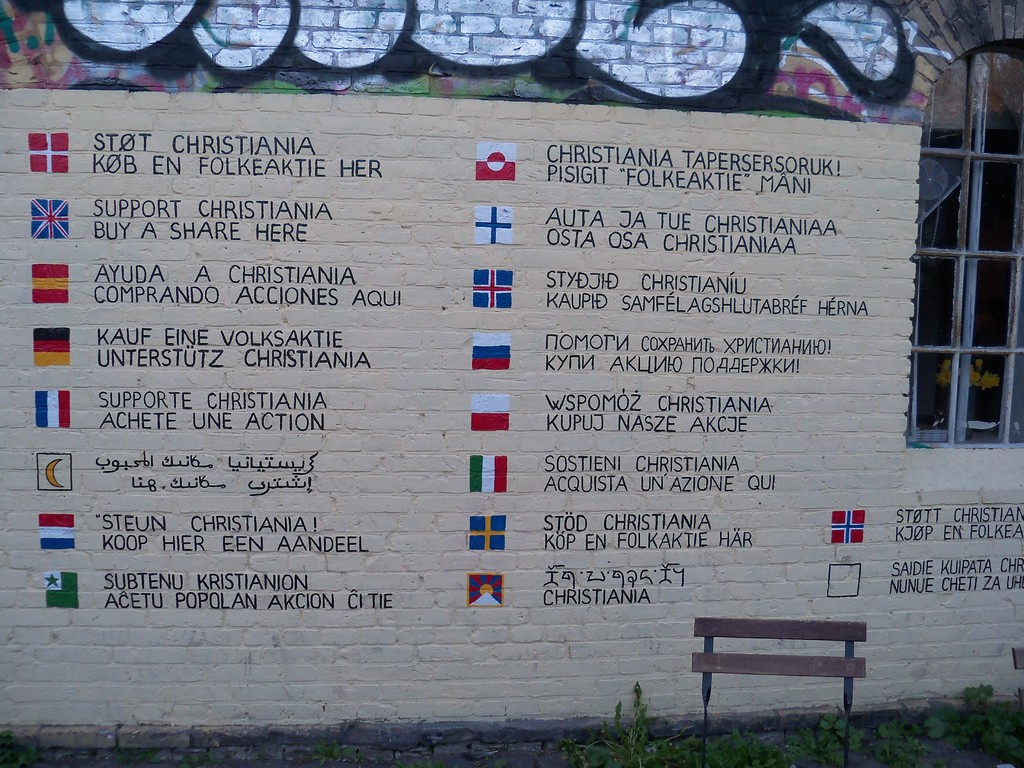 STØT CHRISTIANIA
KØB EN FOLKEAKTIE HER
SUPPORT CHRISTIANIA
BUY A SHARE HERE
AYUDA A CHRISTIANIA
COMPRANDO ACCIONES AQUI
KAUF EINE VOLKSAKTIE
UNTERSTÜTZ CHRISTIANIA
SUPPORTE CHRISTIANIA
ACHETE UNE ACTION
كريستيانيا مكانك المحبوب
إشتري مكانك هنا
"STEUN CHRISTIANIA!
KOOP HIER EEN AANDEEL
SUBTENU KRISTIANION
AĈETU POPOLAN AKCION ĈI TIE
CHRISTIANIA TAPERSERSORUK!
PISIGIT "FOLKEAKTIE" MÂNI
AUTA JA TUE CHRISTIANIAA
OSTA OSA CHRISTIANIAA
STYÐJIÐ CHRISTIANÍU
KAUPIÐ SAMFÉLAGSHLUTABRÉF HÉRNA
ПОМОГИ СОХРАНИТЬ ХРИСТИАНИЮ!
КУПИ АКЦИЮ ПОДДЕРЖКИ!
WSPOMÓŻ CHRISTIANIA
KUPUJ NASZE AKCJE
SOSTIENI CHRISTIANIA
ACQUISTA UN'AZIONE QUI
STÖD CHRISTIANIA
KÖP EN FOLKAKTIE HÄR
CHRISTIANIA
STØTT CHRISTIAN
KJØP EN FOLKEA
SAIDIE KUIPATA CHR
NUNUE CHETI ZA UH